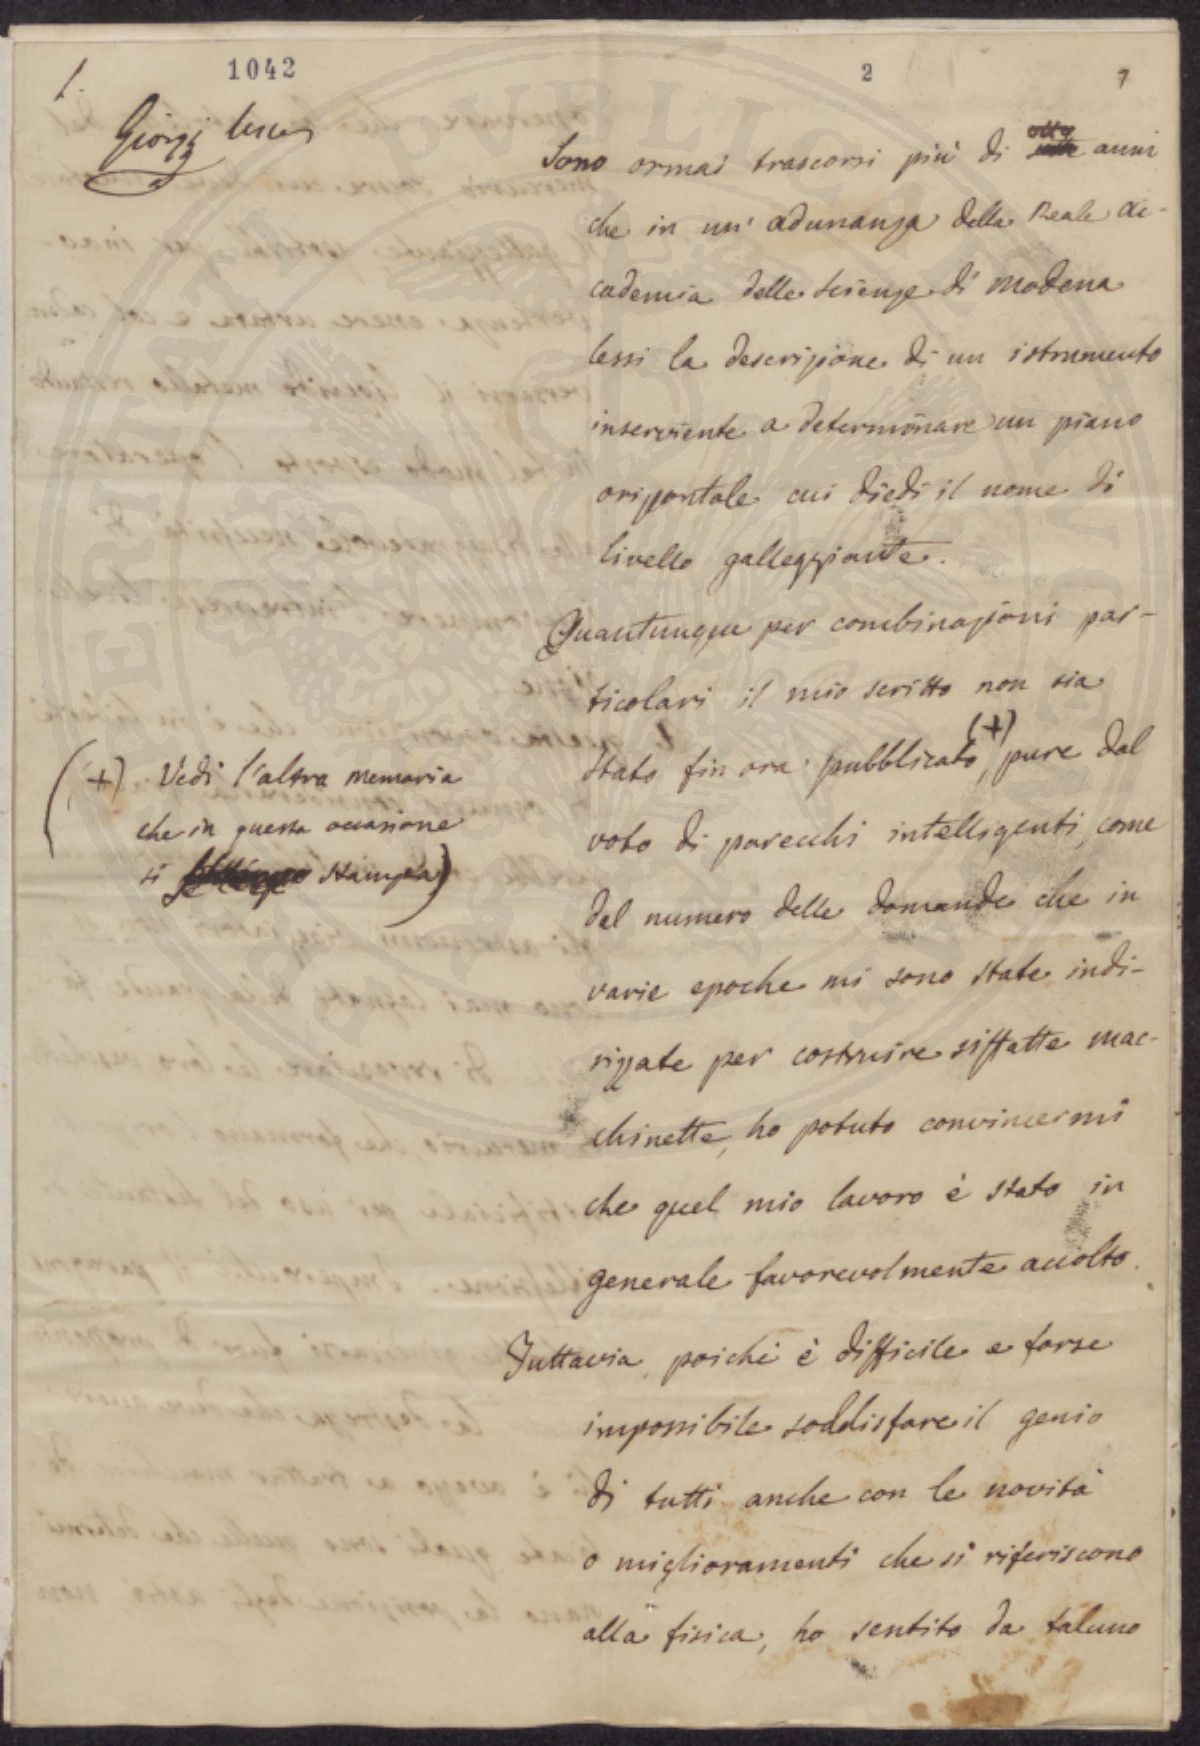 1.
1042
2
7
Giorgj
Sono ormai trascorsi più di otto anni
che in un' adunanza della Reale Ac-
cademia delle Scienze di Modena
lessi la descrizione di un istrumento
inserviente a determinare un piano
orizzontale cui diedi il nome di
livello galleggiante.
Quantunque per combinazioni par-
ticolari il mio scritto non sia
stato fin ora pubblicato (+), pure dal
voto di parecchi intelligenti, come
dal numero delle domande che in
varie epoche mi sono state indi-
rizzate per costruire siffatte mac-
chinette, ho potuto convincermi
che quel mio lavoro è stato in
generale favorevolmente accolto.
Tuttavia, poichè è difficile e forse
impossibile soddisfare il genio
di tutti anche con le novità
o miglioramenti che si riferiscono
alla fisica, ho sentito da taluno
(+) Vedi l'altra memoria
che in questa occasione
si stampa)